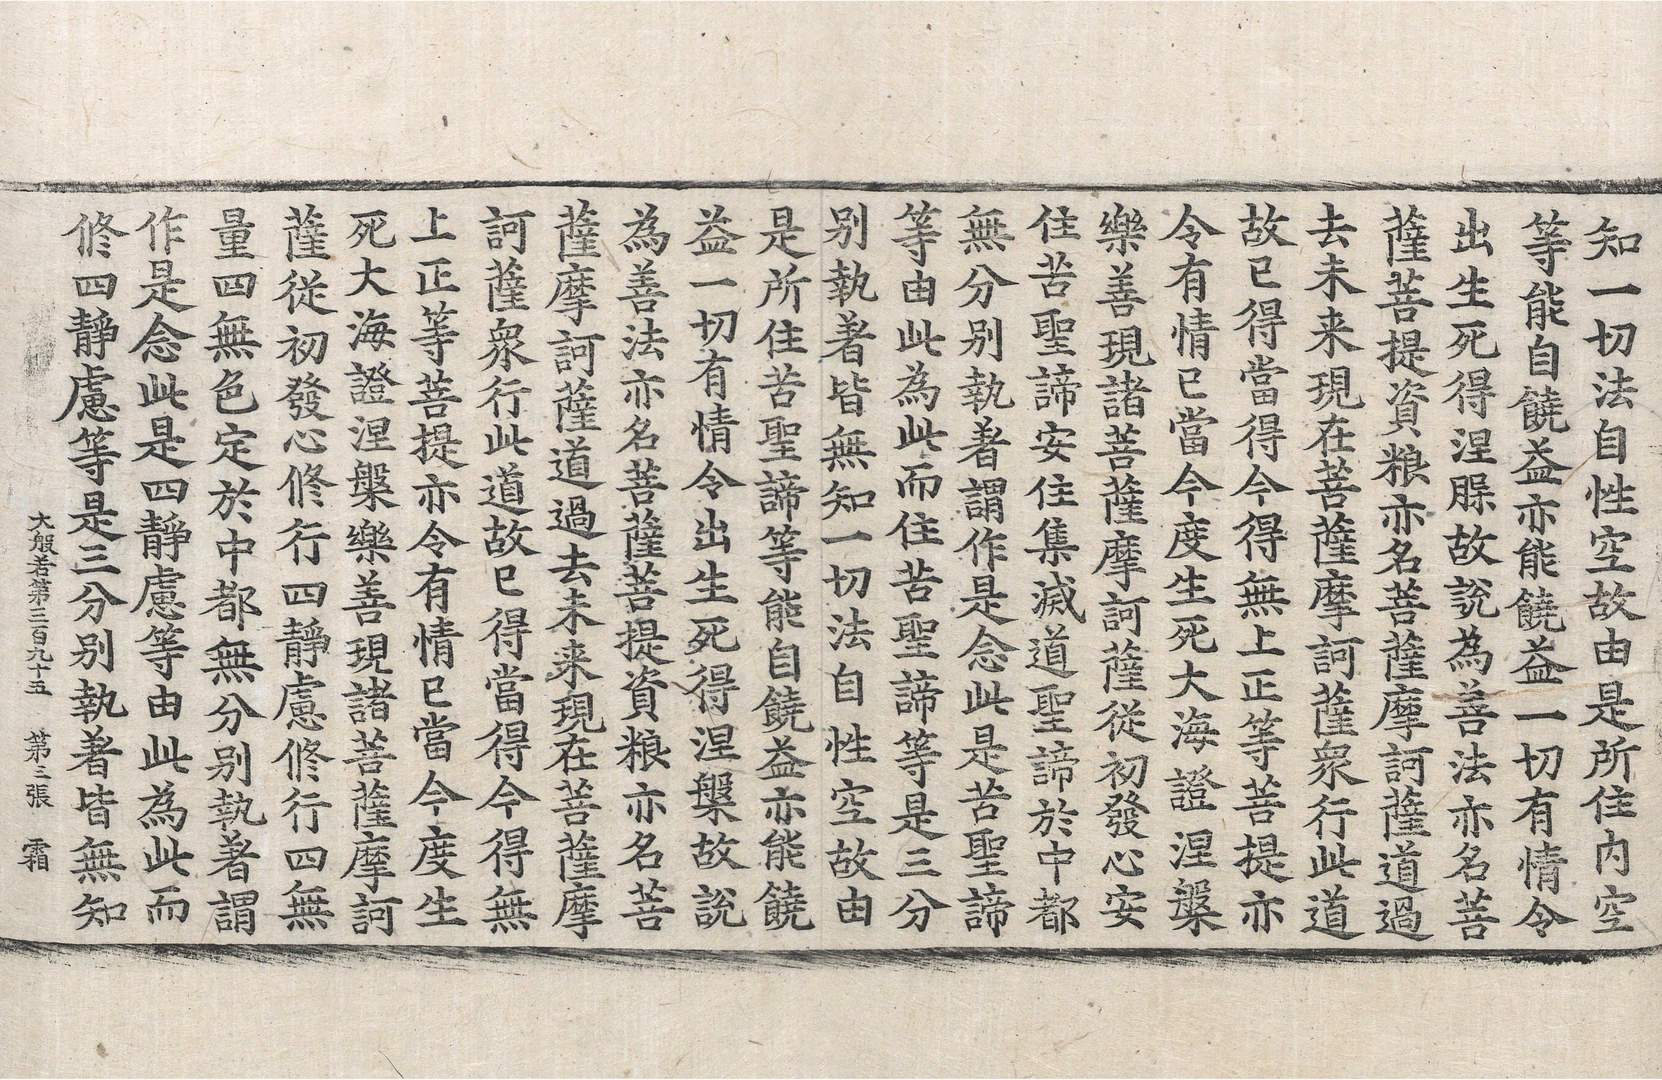 知一切法自性空故由是所住內空
等能自饒益亦能饒益一切有情令
出生死得涅槃故說為善法亦名菩
薩菩提資粮亦名菩薩摩訶薩道過
去未来現在菩薩摩訶薩衆行此道
故已得當得今得無上正等菩提亦
令有情已當今度生死大海證涅槃
樂善現諸菩薩摩訶薩從初發心安
住苦聖諦安住集滅道聖諦於中都
無分別執著謂作是念此是苦聖諦
等由此為此而住苦聖諦等是三分
別執著皆無知一切法自性空故由
是所住苦聖諦等能自饒益亦能饒
益一切有情令出生死得涅槃故說
為善法亦名菩薩菩提資粮亦名菩
薩摩訶薩道過去未来現在菩薩摩
訶薩衆行此道故已得當得今得無
上正等菩提亦令有情已當今度生
死大海證涅槃樂善現諸菩薩摩訶
薩從初發心修行四靜慮修行四無
量四無色定於中都無分別執著謂
作是念此是四靜慮等由此為此而
修四靜慮等是三分別執著皆無知
大般若第三百九十五 第三張 霜